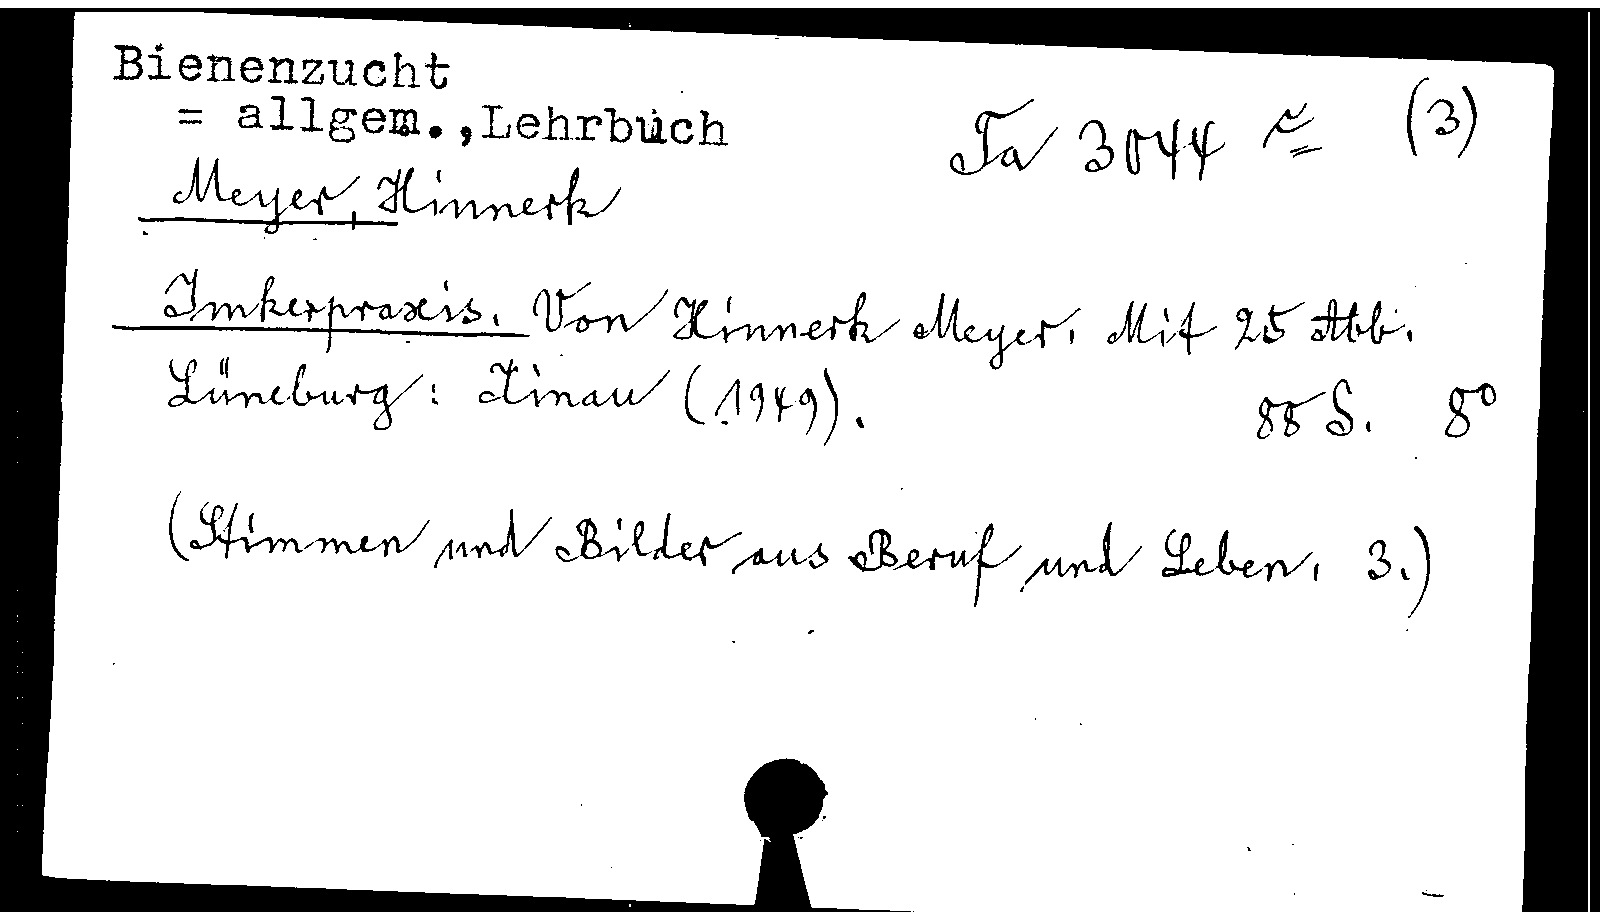 Bienenzucht
= allgem.,Lehrbuch
Ta 3044 (3)
Meyer, Hinnerk
Imkerpraxis. Von Hinnerk Meyer. Mit 25 Abb.
Lüneburg: Kinau (1949). 88 S. 8°
(Stimmen und Bilder aus Beruf und Leben. 3.)